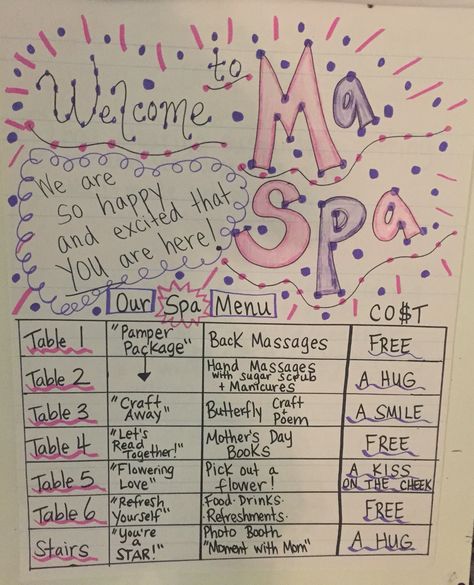 Welcome to Ma Spa
We are
so happy
and excited that
YOU are here!
Our Spa Menu
CO$T
Table 1 "Pamper Package" Back Massages FREE
Table 2 Hand Massages with sugar scrub + Manicures A HUG
Table 3 "Craft Away" Butterfly Craft + Poem A SMILE
Table 4 "Let's Read Together!" Mother's Day Books FREE
Table 5 "Flowering Love" Pick out a flower! A KISS ON THE CHEEK
Table 6 "Refresh Yourself" Food · Drinks · Refreshments · FREE
Stairs "You're a STAR!" Photo Booth "Moment with Mom" A HUG